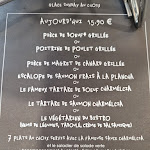 PLACE DUPUY AU CHOIX
AUJOURD'HUI 15,90 €
PIÈCE DE BOEUF GRILLÉE
OU
POITRINE DE POULET GRILLÉE
OU
PIÈCE DE MAGRET DE CANARD GRILLÉE
OU
ESCALOPE DE SAUMON FRAIS À LA PLANCHA
OU
LE FAMEUX TARTARE DE BOEUF CHARMÉLCIA
OU
LE TARTARE DE SAUMON CHARMÉLCIA
OU
LE VÉGÉTARIEN DU BISTRO
7 PLATS AU CHOIX SERVIS AVEC LA FAMEUSE SAUCE CHARMÉLCIA
et la salade de salade verte